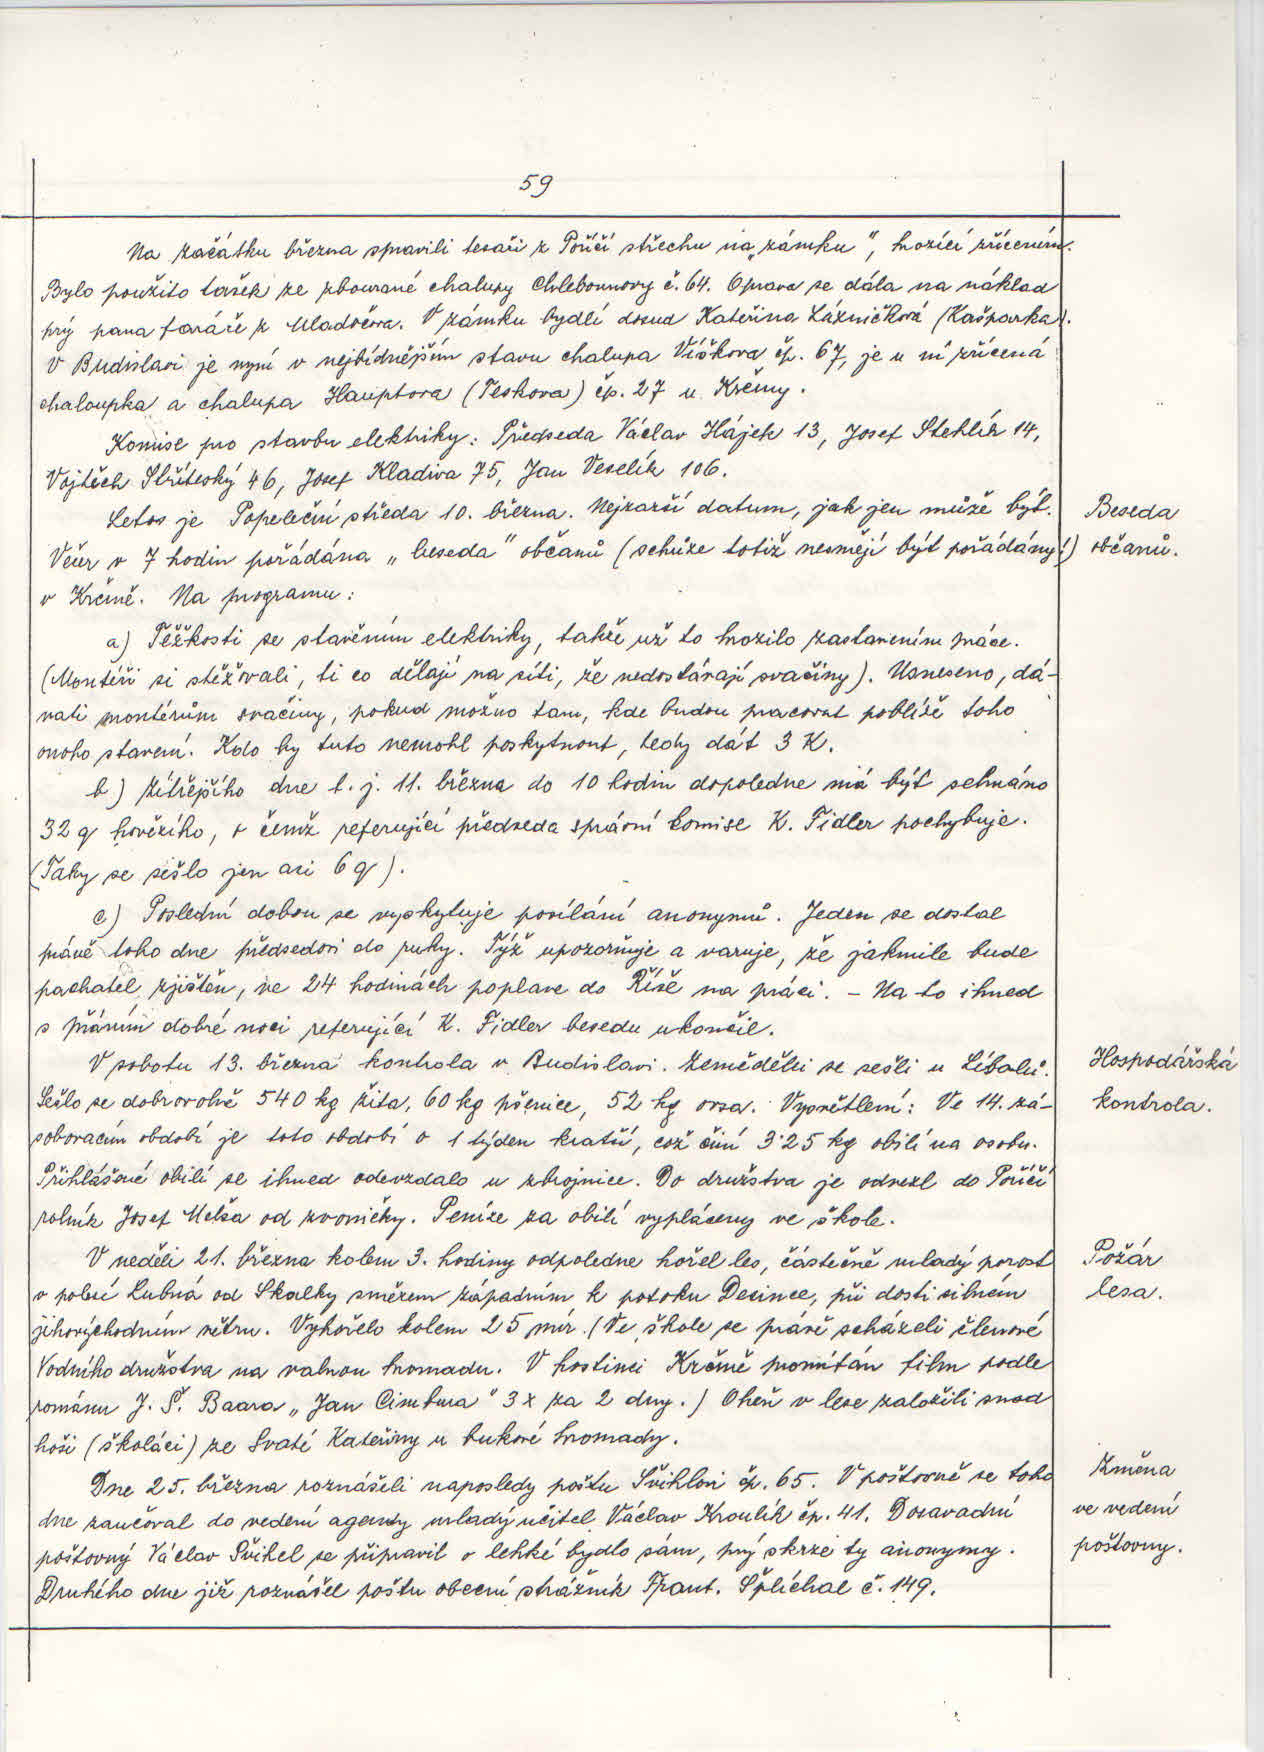 59
Na začátku března spravili tesaři z Poříčí střechu na „zámku", hrozící zřícením.
Bylo použito tašek ze zbourané chalupy Chlebounovy č. 64. Oprava se dála na náklad
prý pana faráře z Mladočova. V zámku bydlí dosud Kateřina Lázničková (Kašparka).
V Budislavi je nyní v nejbídnějším stavu chalupa Víškova čp. 67, je u ní zřícená
chaloupka a chalupa Hauptova (Teskova) čp. 27 u Krčmy.
Komise pro stavbu elektriky: Předseda Václav Hájek 13, Josef Stehlík 14,
Vojtěch Stříteský 46, Josef Kladiva 75, Jan Veselík 106.
Letos je Popeleční středa 10. března. Nejzazší datum, jak jen může být.
Beseda
Večer v 7 hodin pořádána „beseda" občanů (schůze totiž nesmějí být pořádány!)
občanů.
v Krčmě. Na programu:
a) Těžkosti se stavěním elektriky, takže už to hrozilo zastavením práce.
(Montéři si stěžovali, ti co dělají na síti, že nedostávají svačiny). Usneseno, dá-
vati montérům svačiny, pokud možno tam, kde budou pracovat poblíže toho
onoho stavení. Kdo by tuto nemohl poskytnout, tedy dát 3 K.
b) Zítřejšího dne t. j. 11. března do 10 hodin dopoledne má být sehnáno
32 q hovězího, o čemž referující předseda správní komise K. Fidler pochybuje.
(Taky se sešlo jen asi 6 q).
c) Poslední dobou se vyskytuje posílání anonymů. Jeden se dostal
právě toho dne předsedovi do ruky. Týž upozorňuje a varuje, že jakmile bude
pachatel zjištěn, ve 24 hodinách poplave do Říše na práci. - Na to ihned
s přáním dobré noci referující K. Fidler besedu ukončil.
V sobotu 13. března kontrola v Budislavi. Zemědělci se sešli u Líbalů.
Hospodářská
Sešlo se dobrovolně 540 kg žita, 60 kg pšenice, 52 kg ovsa. Vysvětlení: Ve 14. zá-
kontrola.
sobovacím období je toto období o 1 týden kratší, což činí 3·25 kg obilí na osobu.
Přihlášené obilí se ihned odevzdalo u zbrojnice. Do družstva je odvezl do Poříčí
rolník Josef Melša od zvoničky. Peníze za obilí vypláceny ve škole.
V neděli 21. března kolem 3. hodiny odpoledne hořel les, částečně mladý porost
Požár
v polesí Lubná od Skalky směrem západním k potoku Desince, při dosti silném
lesa.
jihovýchodním větru. Vyhořelo kolem 25 mír. (Ve škole se právě scházeli členové
Vodního družstva na valnou hromadu. V hostinci Krčmě promítán film podle
románu J. Š. Baara „Jan Cimbura" 3x za 2 dny.) Oheň v lese založili snad
hoši (školáci) ze Svaté Kateřiny u bukové hromady.
Dne 25. března roznášeli naposledy poštu Švihlovi čp. 65. V poštovně se toho
Změna
dne zaučoval do vedení agendy mladý učitel Václav Kroulík čp. 41. Dosavadní
ve vedení
poštovný Václav Švihel se připravil o lehké bydlo sám, prý skrze ty anonymy.
poštovny.
Druhého dne již roznášel poštu obecní strážník Frant. Šplíchal č. 149.